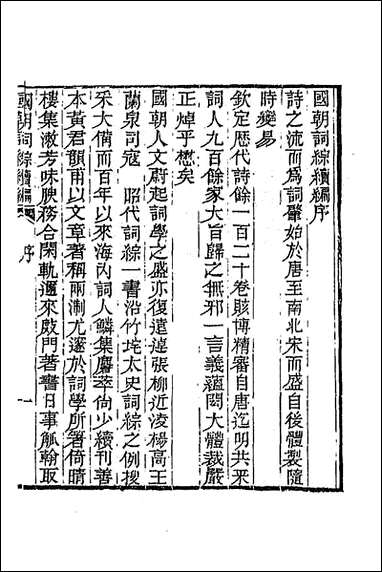 國朝詞綜續編序
詩之流而爲詞肇始於唐至南北宋而盛自後體製隨
時變易
欽定歷代詩餘一百二十卷賅博精審自唐迄明共釆
詞人九百餘家大旨歸之無邪一言義蘊閎大體裁嚴
正焯乎懋矣
國朝人文蔚起詞學之盛亦復遠追張柳近淩楊高王
蘭泉司寇 昭代詞綜一書沿竹垞太史詞綜之例搜
釆大備而百年以來海內詞人鱗集麏萃尙少續刊善
本黃君韻甫以文章著稱兩浙尤邃於詞學所箸倚晴
樓集漱芳味腴務合閑軌邇來戢門著書日事觚翰取
國朝詞綜續編 序 一